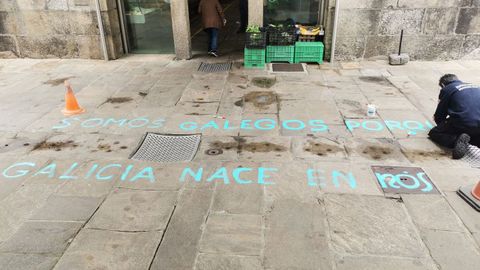 SOMOS GALEGOS PORQU
GALICIA NACE EN NÓS